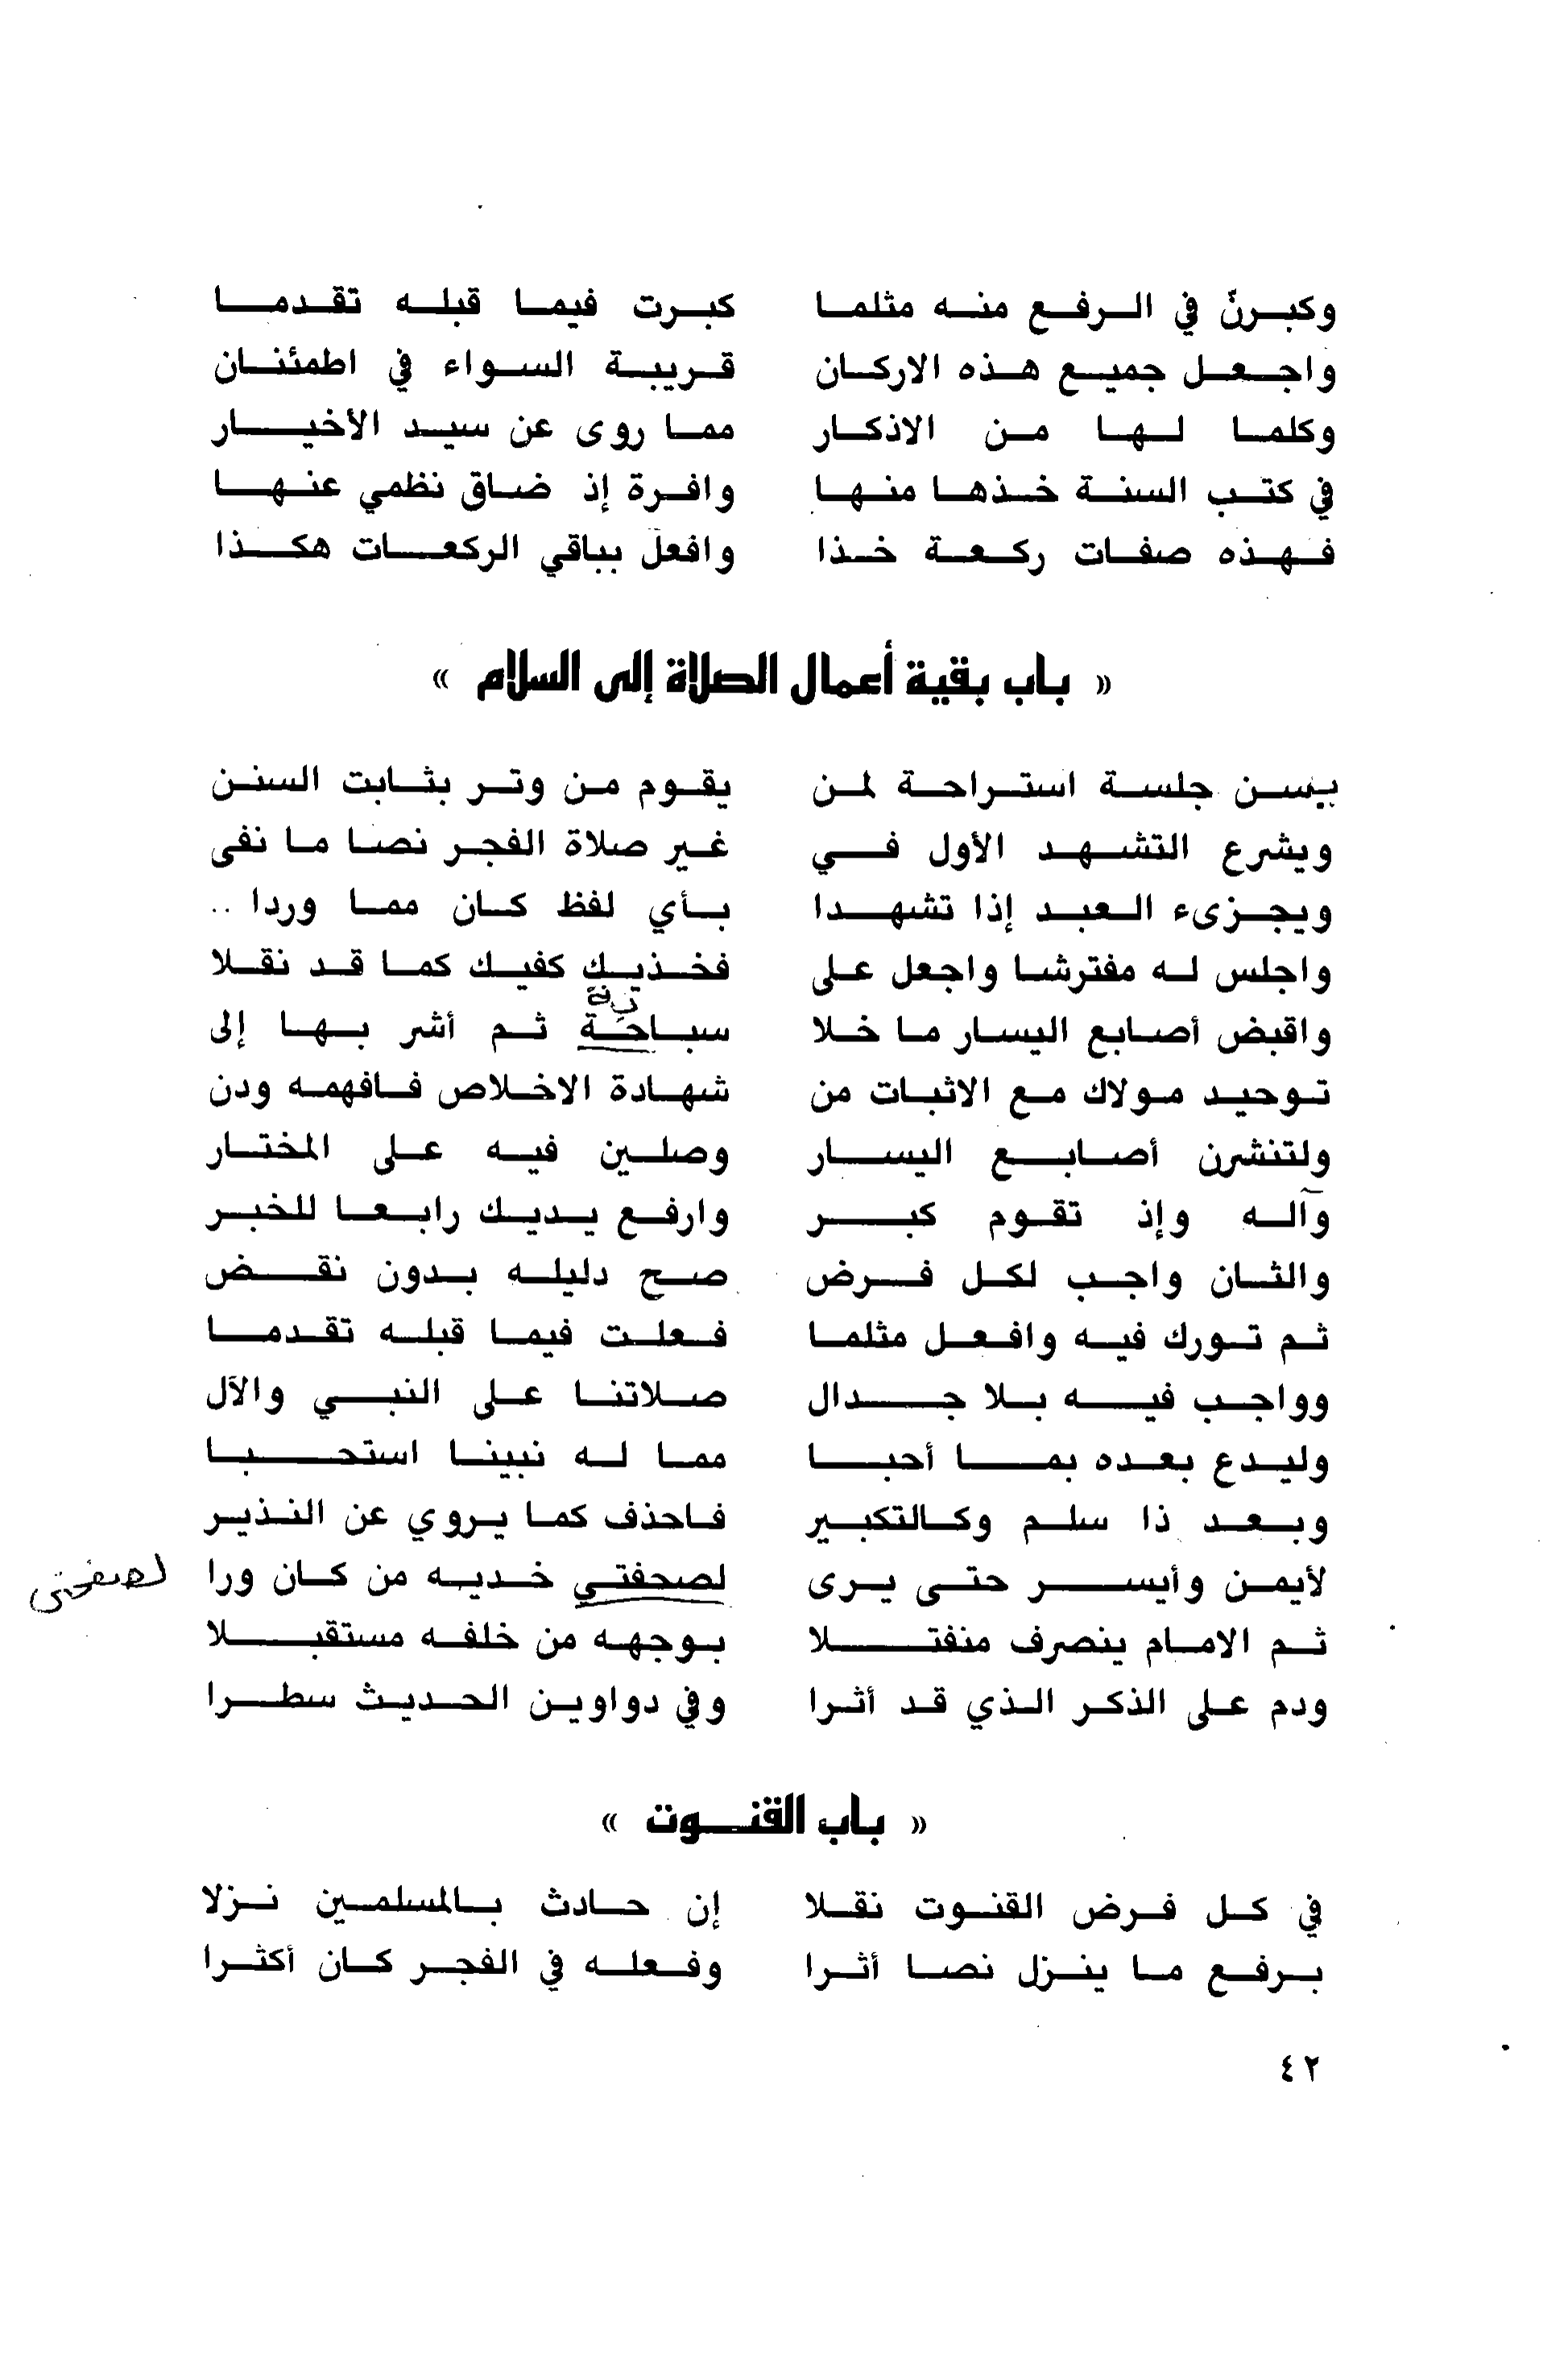 وكبرنّ في الرفع منه مثلما كبرت فيما قبله تقدما
واجعل جميع هذه الاركان قريبة السواء في اطمئنان
وكلما لها من الاذكار مما روى عن سيد الأخيار
في كتب السنة خذها منها وافرة إذ ضاق نظمي عنها
فهذه صفات ركعة خذا وافعل بباقي الركعات هكذا
« باب بقية أعمال الصلاة إلى السلام »
يسن جلسة استراحة لمن يقوم من وتر بثابت السنن
ويشرع التشهد الأول في غير صلاة الفجر نصا ما نفى
ويجزىء العبد إذا تشهدا بأي لفظ كان مما وردا ..
واجلس له مفترشا واجعل على فخذيك كفيك كما قد نقلا
واقبض أصابع اليسار ما خلا سباحة ثم أشر بها إلى
توحيد مولاك مع الاثبات من شهادة الاخلاص فافهمه ودن
ولتنشرن أصابع اليسار وصلين فيه على المختار
وآله وإذ تقوم كبر وارفع يديك رابعا للخبر
والثان واجب لكل فرض صح دليله بدون نقض
ثم تورك فيه وافعل مثلما فعلت فيما قبله تقدما
وواجب فيه بلا جدال صلاتنا على النبي والآل
وليدع بعده بما أحبا مما له نبينا استحبا
وبعد ذا سلم وكالتكبير فاحذف كما يروي عن النذير
لأيمن وأيسر حتى يرى لصحفتي خديه من كان ورا لصفحتي
ثم الامام ينصرف منفتلا بوجهه من خلفه مستقبلا
ودم على الذكر الذي قد أثرا وفي دواوين الحديث سطرا
« باب القنوت »
في كل فرض القنوت نقلا إن حادث بالمسلمين نزلا
برفع ما ينزل نصا أثرا وفعله في الفجر كان أكثرا
٤٢